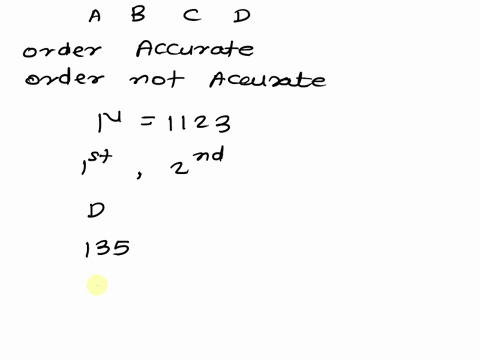 A B C D
order Accurate
order not Accurate
N = 1123
1st, 2nd
D
135